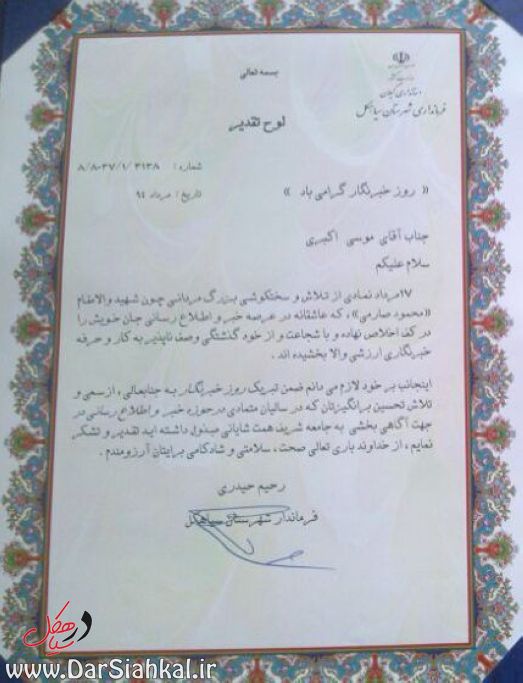 بسمه تعالی
استانداری گیلان
فرمانداری شهرستان سیاهکل
لوح تقدیر
شماره : ۸/۸-۳۷/۱/ ۳۱۳۸
تاریخ : مرداد ۹۴
« روز خبرنگار گرامی باد »
جناب آقای موسی اکبری
سلام علیکم
۱۷مرداد نمادی از تلاش و سختکوشی بزرگ مردانی چون شهید والامقام
«محمود صارمی» ، که عاشقانه در عرصه خبر و اطلاع رسانی جان خویش را
در کف اخلاص نهاده و با شجاعت و از خود گذشتگی وصف ناپذیر به کار و حرفه
خبرنگاری ارزشی والا بخشیده اند .
اینجانب بر خود لازم می دانم ضمن تبریک روز خبرنگار به جنابعالی ، از سعی و
تلاش تحسین برانگیزتان که در سالیان متمادی در حوزه خبر و اطلاع رسانی در
جهت آگاهی بخشی به جامعه شریف همت شایانی مبذول داشته اید تقدیر و تشکر
نمایم ، از خداوند باری تعالی صحت ، سلامتی و شادکامی برایتان آرزومندم .
رحیم حیدری
فرماندار شهرستان سیاهکل
در سیاهکل
www.DarSiahkal.ir